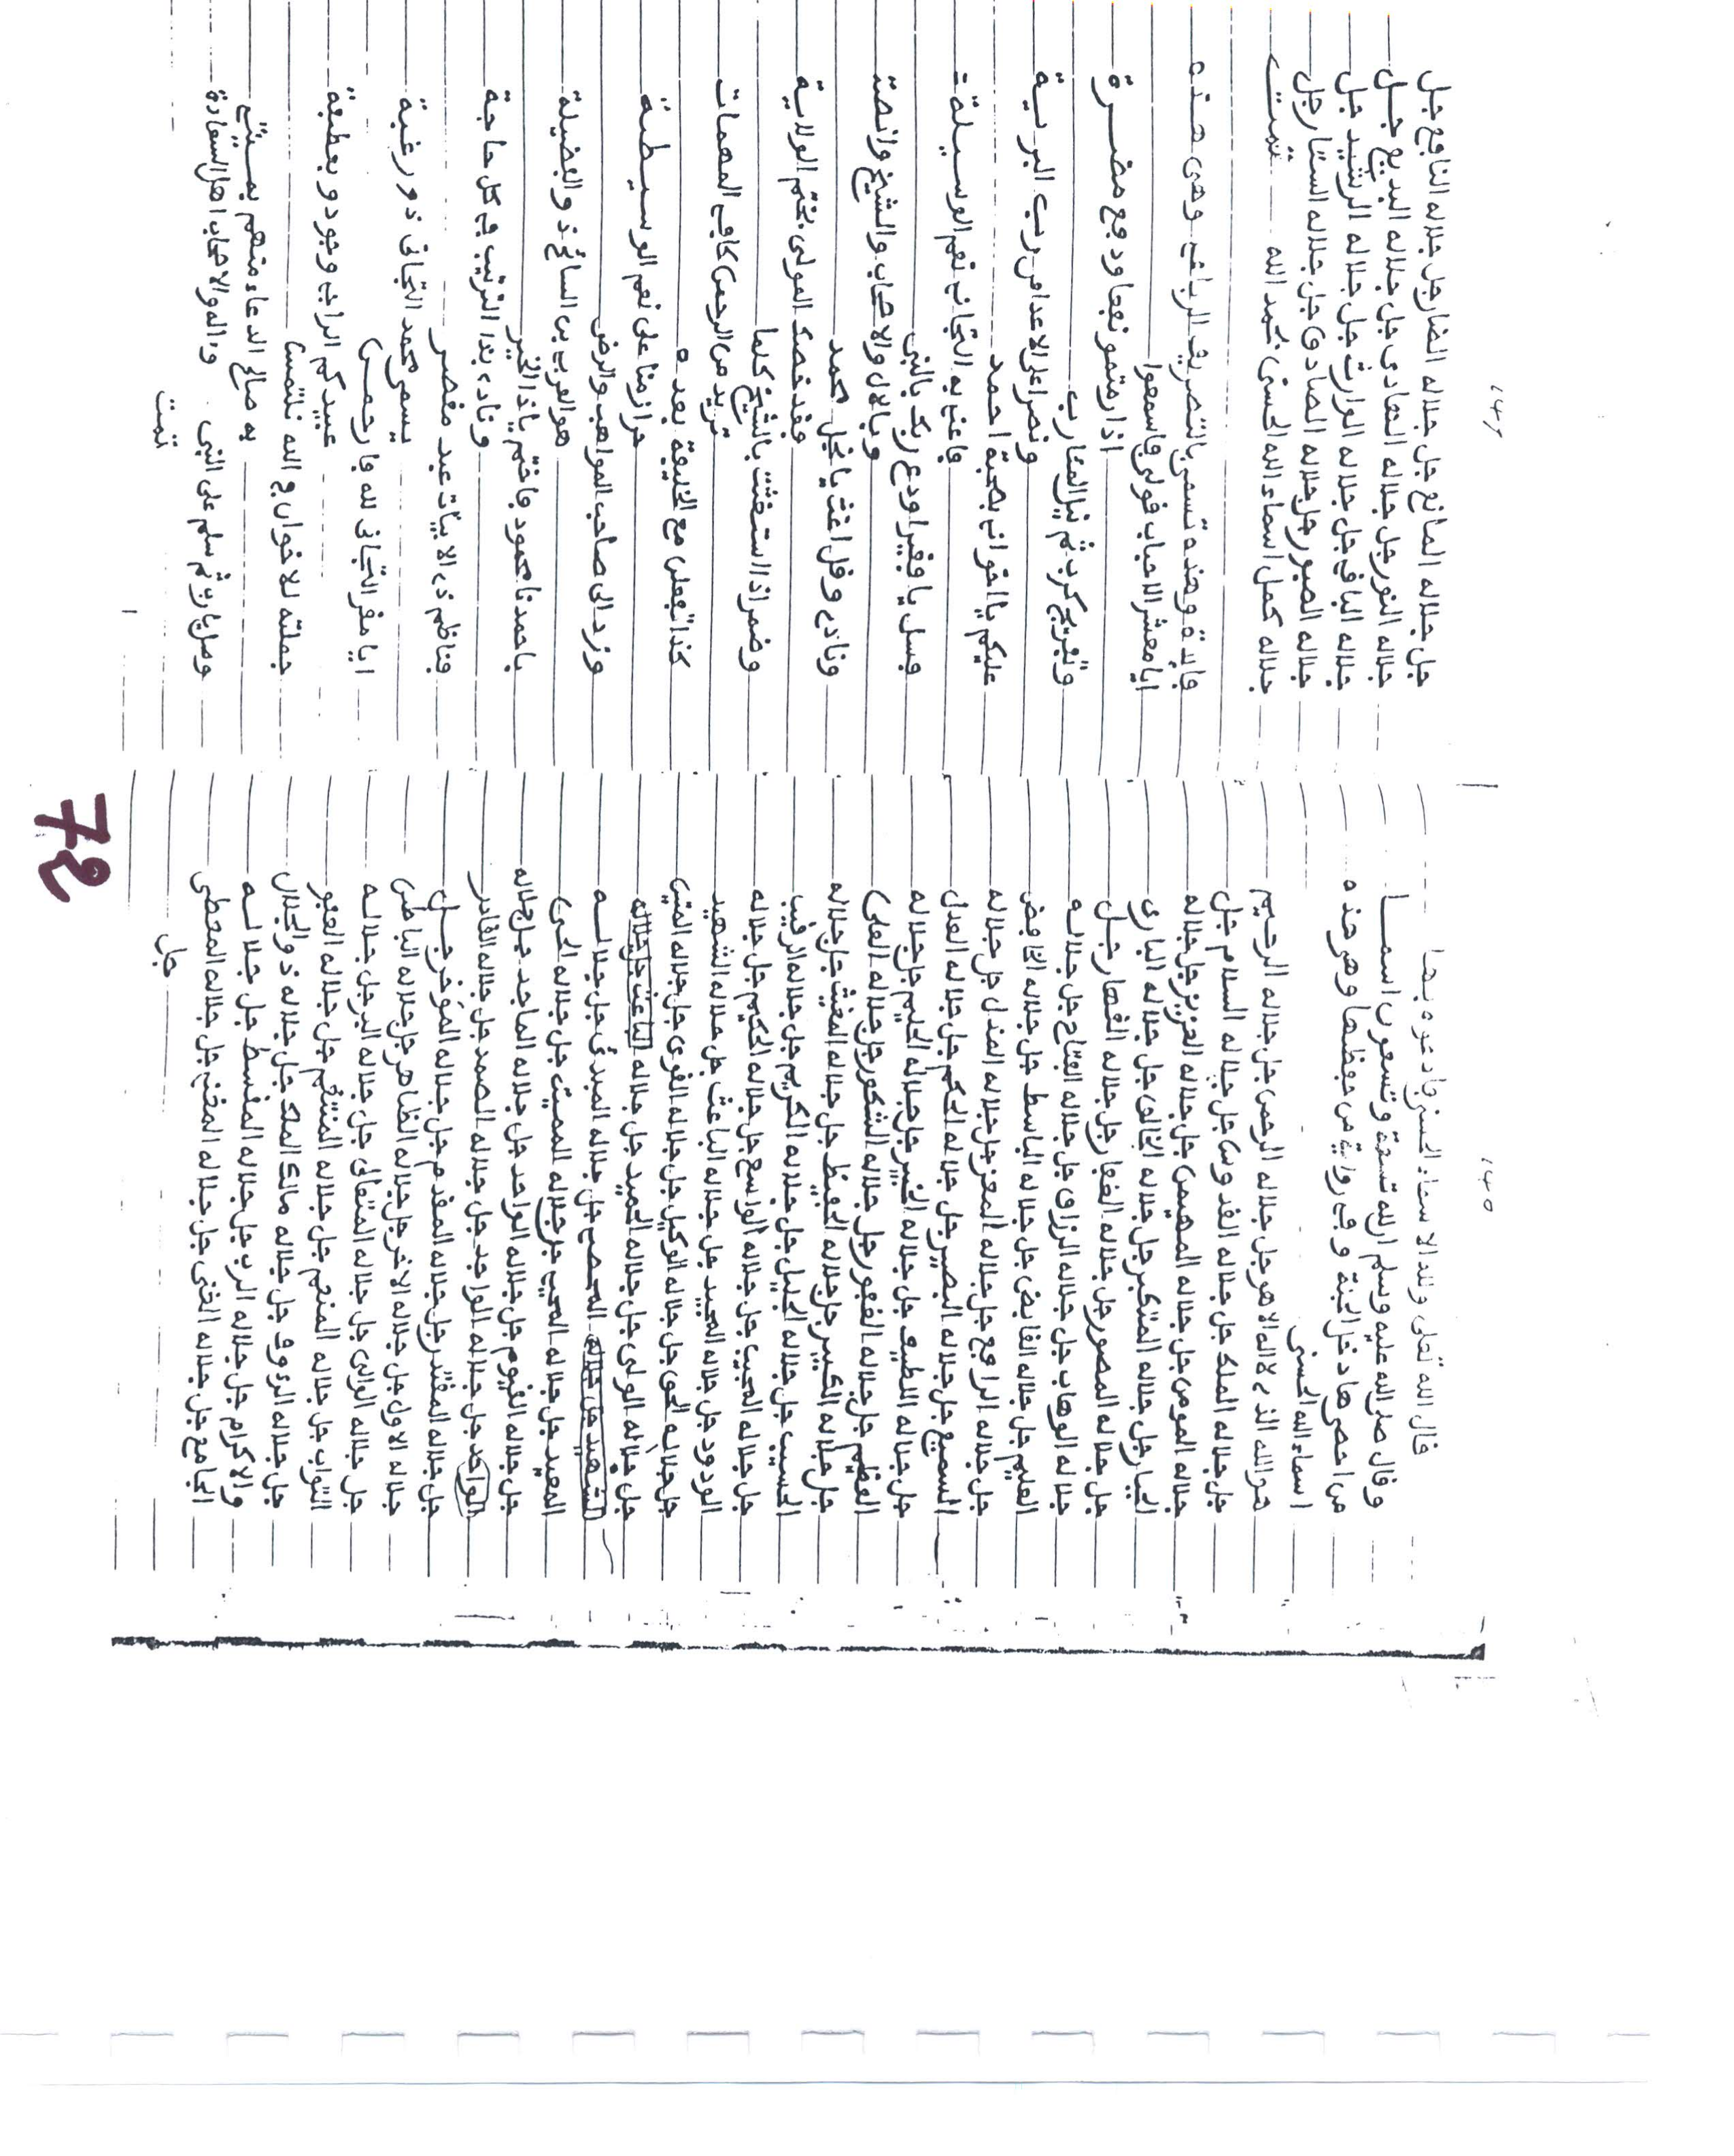 ١٤٥
قال الله تعلى ولله الاسماء الحسنى فادعوه بها
وقال صلى الله عليه وسلم ان لله تسعة وتسعون اسما
من احصىها دخل الجنة وفى رواية من حفظها وهى هذه
اسماء الله الحسنى
هو الله الذى لا اله الا هو جل جلاله الرحمن جل جلاله الرحيم
جل جلاله الملك جل جلاله القدوس جل جلاله السلام جل
جلاله المومن جل جلاله المهيمن جل جلاله العزيز جل جلاله
الجبار جل جلاله المتكبر جل جلاله الخالق جل جلاله البارى
جل جلاله المصور جل جلاله الغفار جل جلاله القهار جل
جلاله الوهاب جل جلاله الرزاق جل جلاله الفتاح جل جلاله
العليم جل جلاله القابض جل جلاله الباسط جل جلاله الخافض
جل جلاله الرافع جل جلاله المعز جل جلاله المذل جل جلاله
السميع جل جلاله البصير جل جلاله الحكم جل جلاله العدل
جل جلاله اللطيف جل جلاله الخبير جل جلاله الحليم جل جلاله
العظيم جل جلاله الغفور جل جلاله الشكور جل جلاله العلى
جل جلاله الكبير جل جلاله الحفيظ جل جلاله المغيث جل جلاله
الحسيب جل جلاله الجليل جل جلاله الكريم جل جلاله الرقيب
جل جلاله المجيب جل جلاله الواسع جل جلاله الحكيم جل جلاله
الودود جل جلاله المجيد جل جلاله الباعث جل جلاله الشهيد
جل جلاله الحق جل جلاله الوكيل جل جلاله القوى جل جلاله المتين
جل جلاله الولى جل جلاله الحميد جل جلاله الباعث جل جلاله
الشهيد جل جلاله المحصى جل جلاله المبدئ جل جلاله
المعيد جل جلاله المحيى جل جلاله المميت جل جلاله الحى
جل جلاله القيوم جل جلاله الواحد جل جلاله الماجد جل جلاله
الواحد جل جلاله الواجد جل جلاله الصمد جل جلاله القادر
جل جلاله المقتدر جل جلاله المقدم جل جلاله الموخر جل
جلاله الاول جل جلاله الاخر جل جلاله الظاهر جل جلاله الباطن
جل جلاله الوالى جل جلاله المتعالى جل جلاله البر جل جلاله
التواب جل جلاله المنعم جل جلاله المنتقم جل جلاله العفو
جل جلاله الرءوف جل جلاله مالك الملك جل جلاله ذو الجلال
والاكرام جل جلاله الرب جل جلاله المقسط جل جلاله
الجامع جل جلاله الغنى جل جلاله المغنى جل جلاله المعطى
جل
72
١٤٦
جل جلاله المانع جل جلاله الضار جل جلاله النافع جل
جلاله النور جل جلاله الهادى جل جلاله البديع جل
جلاله الباقى جل جلاله الوارث جل جلاله الرشيد جل
جلاله الصبور جل جلاله الصادق جل جلاله الستار جل
جلاله كمل اسماء الله الحسنى بحمد الله تمت
فايدة وهذه تسمى بالتصريف الرباعى وهى هذه
ايا معشر الاحباب قولى فاسمعوا
اذا رمتمو نفعا ودفع مضرة
وتفريج كرب ثم نيل المئارب
ونصرا على الاعدا من رب البرية
عليكم يا اخوانى بصحبة احمد
فاعنى به التجانى نعم الوسيلة
فسل يا فقيرا ودع ربك بالنبى
وبالال والاصحاب والشيخ وانصة
ونادى وقل اغث يا نجل محمد
فقد خصك المولى بختم الولاية
وضمر اذا استغثت بالشيخ كلما
تريد من الرحمن كافى المهمات
كذا تفعلن مع الخليفة بعده
حرازمنا على نعم الوسيطة
وزد الى صاحب المواهب والرضى
هو العربى بن السائح ذو الفضيلة
باحمدنا محمود فاختم ياذا الخير
وناد بذا الترتيب فى كل حاجة
فناظم ذى الابيات عبد مقصر
يسمى محمد التجانى ذو رغبة
ايا مفر التجانى لله فارحمن
عبيدكم الرابى وجود و بعطفة
جملته للاخوان فى الله نلتمس
به صالح الدعاء منهم بمستجى
وصل يارب ثم سلم على النبى
واله والاصحاب اهل السعادة
تمت